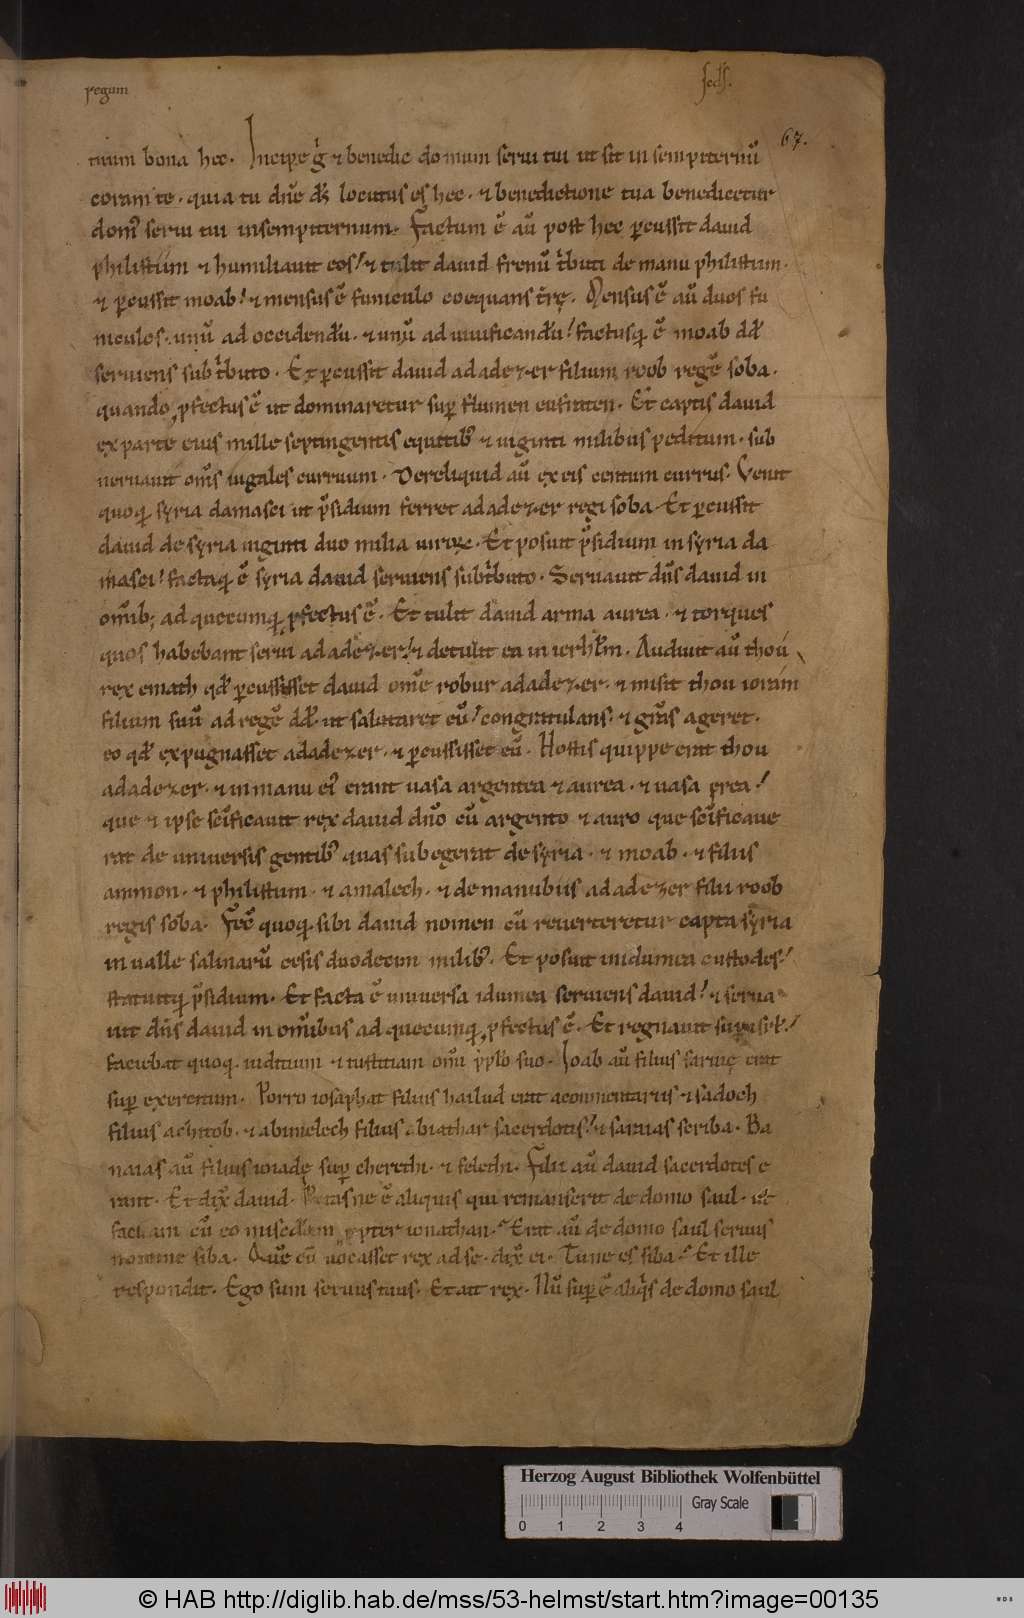 regum
secds.
67.
tuum bona hec. Incipe g̊ ⁊ benedic domum serui tui ut sit in sempiternū
coram te. quia tu dn̄e ds̄ locutus es hec. ⁊ benedictione tua benedicetur
dom᷒ serui tui insempiternum. Factum ē aū post hec ꝑcussit dauid
philistiim ⁊ humiliauit eos. ⁊ tulit dauid frenū t͛buti de manu philistiim.
⁊ ꝑcussit moab. ⁊ mensus ē funiculo coequans t̄rę. Mensus ē aū duos fu
niculos. unū ad occidendū. ⁊ unū ad uiuificandū. factusq; ē moab dd̄
seruiens sub t͛buto. Et ꝑcussit dauid adadezer filium roob regē soba.
quando ꝓfectus ē ut dominaretur suꝑ flumen eufraten. Et captis dauid
ex parte eius mille septingentis equitib᷒ ⁊ uiginti milibus peditum. sub
neruauit om̄s iugales curruum. Dereliquid aū ex eis centum currus. Venit
quoq; syria damasci ut p̄sidium ferret adadezer regi soba. Et ꝑcussit
dauid de syria uiginti duo milia uirorꝝ. Et posuit p̄sidium in syria da
masci. factaq; ē syria dauid seruiens sub t͛buto. Seruauit dn̄s dauid in
om̄ib; ad quecumq; ꝓfectus ē. Et tulit dauid arma aurea. ⁊ torques
quos habebant serui adadezer. ⁊ detulit ea in ierhl̄m. Audiuit aū thou
rex emath qd̄ ꝑcussisset dauid om̄e robur adadezer. ⁊ misit thou ioram
filium suū ad regē dd̄. ut salutaret eū. congratulans. ⁊ gr̄as ageret.
eo qd̄ expugnasset adadezer. ⁊ ꝑcussisset eū. Hostis quippe erat thou
adadezer. ⁊ in manu ei᷒ erant uasa argentea ⁊ aurea. ⁊ uasa ęrea.
que ⁊ ipse sc̄ificauit rex dauid dn̄o cū argento ⁊ auro que sc̄ificaue
rat de uniuersis gentib᷒ quas subegerat de syria. ⁊ moab. ⁊ filiis
ammon. ⁊ philistiim. ⁊ amalech. ⁊ de manubiis adadezer filii roob
regis soba. Fec̄ quoq; sibi dauid nomen cū reuerteretur capta syria
in ualle salinarū cesis duodecim milib᷒. Et posuit in idumea custodes.
statuitq; p̄sidium. Et facta ē uniuersa idumea seruiens dauid. ⁊ serua
uit dn̄s dauid in om̄ibus ad quecumq; ꝓfectus ē. Et regnauit suꝑ isrł.
faciebat quoq; iuditium ⁊ iustitiam omī pplo suo. Ioab aū filius saruię erat
suꝑ exercitum. Porro iosaphat filius hailud erat acommentariis ⁊ sadoch
filius achitob. ⁊ abimelech filius abiathar sacerdotis. ⁊ saraias scriba. Ba
naias aū filius ioiadę suꝑ cherethi. ⁊ felethi. Filii aū dauid sacerdotes e
rant. Et dix̄ dauid. Putasne ē aliquis qui remanserit de domo saul. ut
faciam cū eo misedr̄am ꝓpter ionathan. Erat aū de domo saul seruus
nomine siba. Quē cū uocasset rex ad se. dix̄ ei. Tune es siba. Et ille
respondit. Ego sum seruus tuus. Et ait rex. Nū suꝑ ē aliq͛s de domo saul
Herzog August Bibliothek Wolfenbüttel
0 1 2 3 4
Gray Scale
© HAB http://diglib.hab.de/mss/53-helmst/start.htm?image=00135